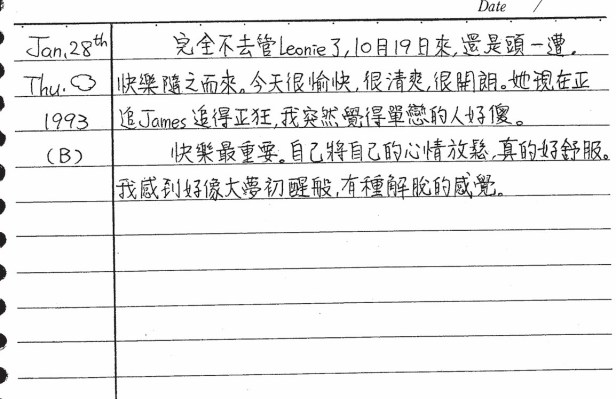 Date /
Jan, 28th 完全不去管Leonie了,10月19日來,還是頭一遭。
Thu. 快樂隨之而來。今天很愉快,很清爽,很開朗。她現在正
1993 追James追得正狂,我突然覺得單戀的人好傻。
(B) 快樂最重要。自己將自己的心情放鬆,真的好舒服。
我感到好像大夢初醒般,有種解脫的感覺。